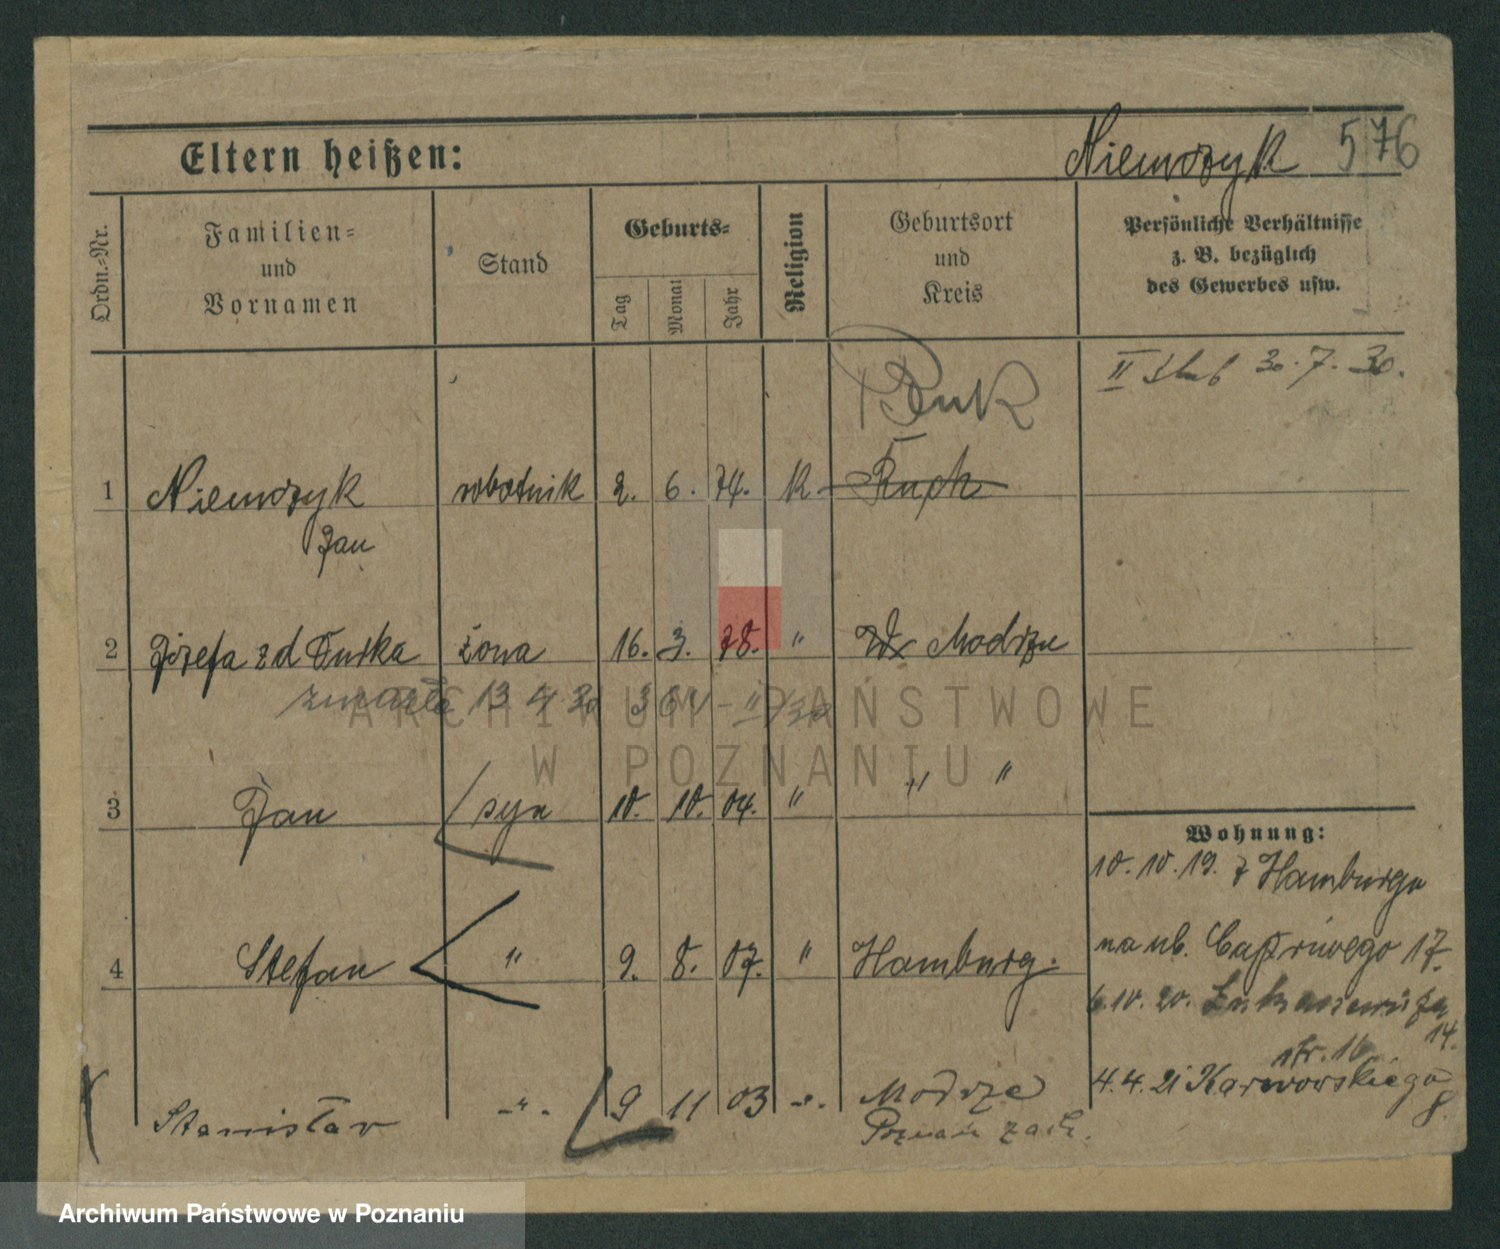 Eltern heißen:
Niemczyk 576
Ordn.-Nr.
Familien-
und
Vornamen
Stand
Geburts-
Tag
Monat
Jahr
Religion
Geburtsort
und
Kreis
Persönliche Verhältnisse
z. B. bezüglich
des Gewerbes usw.
II ślub 30.7.30.
Buk
1 Niemczyk robotnik 2. 6. 74. K
Jan
2 Józefa zd żona 16. 3. 78. " Modrze
zmarła 13 4 30
3 Jan syn 10. 10. 04. " " "
Wohnung:
10.10.19. z Hamburga
4 Stefan " 9. 8. 07. " Hamburg.
na ul. 17.
6.10.20.
14.
str. 16
4.4.21 Karwowskiego
8.
Stanisław -"- 9 11 03 -"- Modrze
Poznań zach.
ARCHIWUM PAŃSTWOWE
W POZNANIU
Archiwum Państwowe w Poznaniu